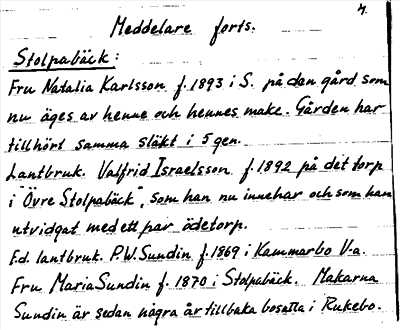 4.
Meddelare forts.
Stolpabäck:
Fru Natalia Karlsson f. 1893 i S. på den gård som
nu äges av henne och hennes make. Gården har
tillhört samma släkt i 5 gen.
Lantbruk. Valfrid Israelsson f. 1892 på det torp
i "Övre Stolpabäck", som han nu innehar och som han
utvidgat med ett par ödetorp.
F.d. lantbruk. P.W. Sundin f. 1869 i Kammarbo V-a.
Fru Maria Sundin f. 1870 i Stolpabäck. Makarna
Sundin är sedan några år tillbaka bosatta i Rukebo.